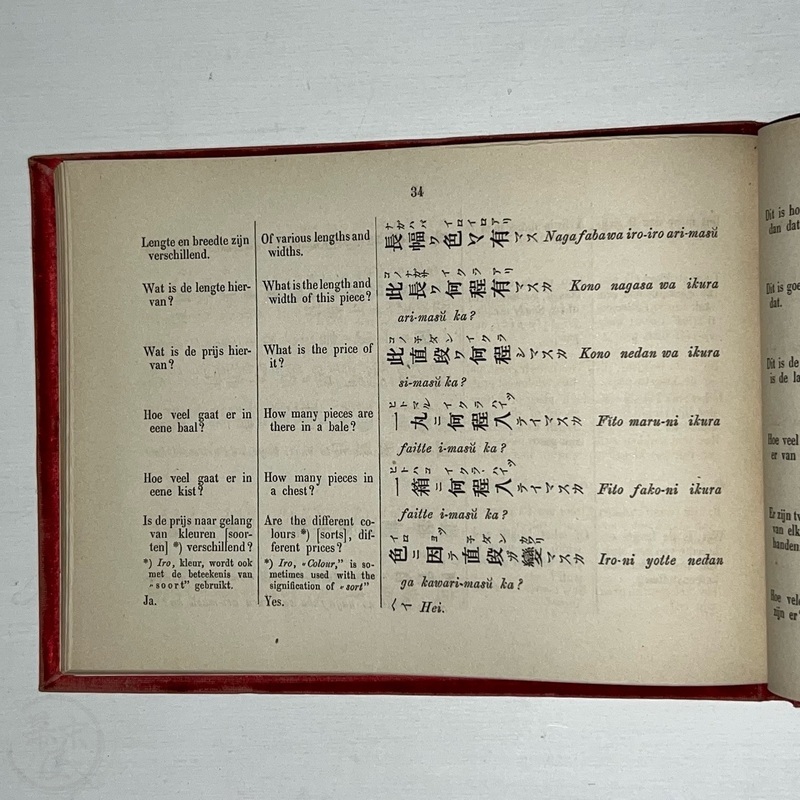 34
Lengte en breedte zijn
verschillend.
Of various lengths and
widths.
ナガハバ イロイロアリ
長幅ワ色〻有マス Naga faba wa iro-iro ari-masŭ
Wat is de lengte hier-
van?
What is the length and
width of this piece?
コノナガサ イクラ アリ
此長ワ何程有マスカ Kono nagasa wa ikura
ari-masŭ ka?
Wat is de prijs hier-
van?
What is the price of
it?
コノ子ダン イクラ
此直段ワ何程シマスカ Kono nedan wa ikura
si-masŭ ka?
Hoe veel gaat er in
eene baal?
How many pieces are
there in a bale?
ヒトマル イクラ ハイツ
一丸ニ何程入テイマスカ Fito maru-ni ikura
faitte i-masŭ ka?
Hoe veel gaat er in
eene kist?
How many pieces in
a chest?
ヒトハコ イクラ ハイツ
一箱ニ何程入テイマスカ Fito fako-ni ikura
faitte i-masŭ ka?
Is de prijs naar gelang
van kleuren [soor-
ten] *) verschillend?
Are the different co-
lours *) [sorts], dif-
ferent prices?
イロ ヨツ 子ダン カワリ
色ニ因テ直段ガ變マスカ Iro-ni yotte nedan
ga kawari-masŭ ka?
*) Iro, kleur, wordt ook
met de beteekenis van
„soort” gebruikt.
*) Iro, „Colour,” is so-
metimes used with the
signification of „sort”
Ja.
Yes.
ヘイ Hei.
Dit is
dan dat
Dit is
dat.
Dit is de
is de
veel
er van
Er zijn
van
veel
zijn er